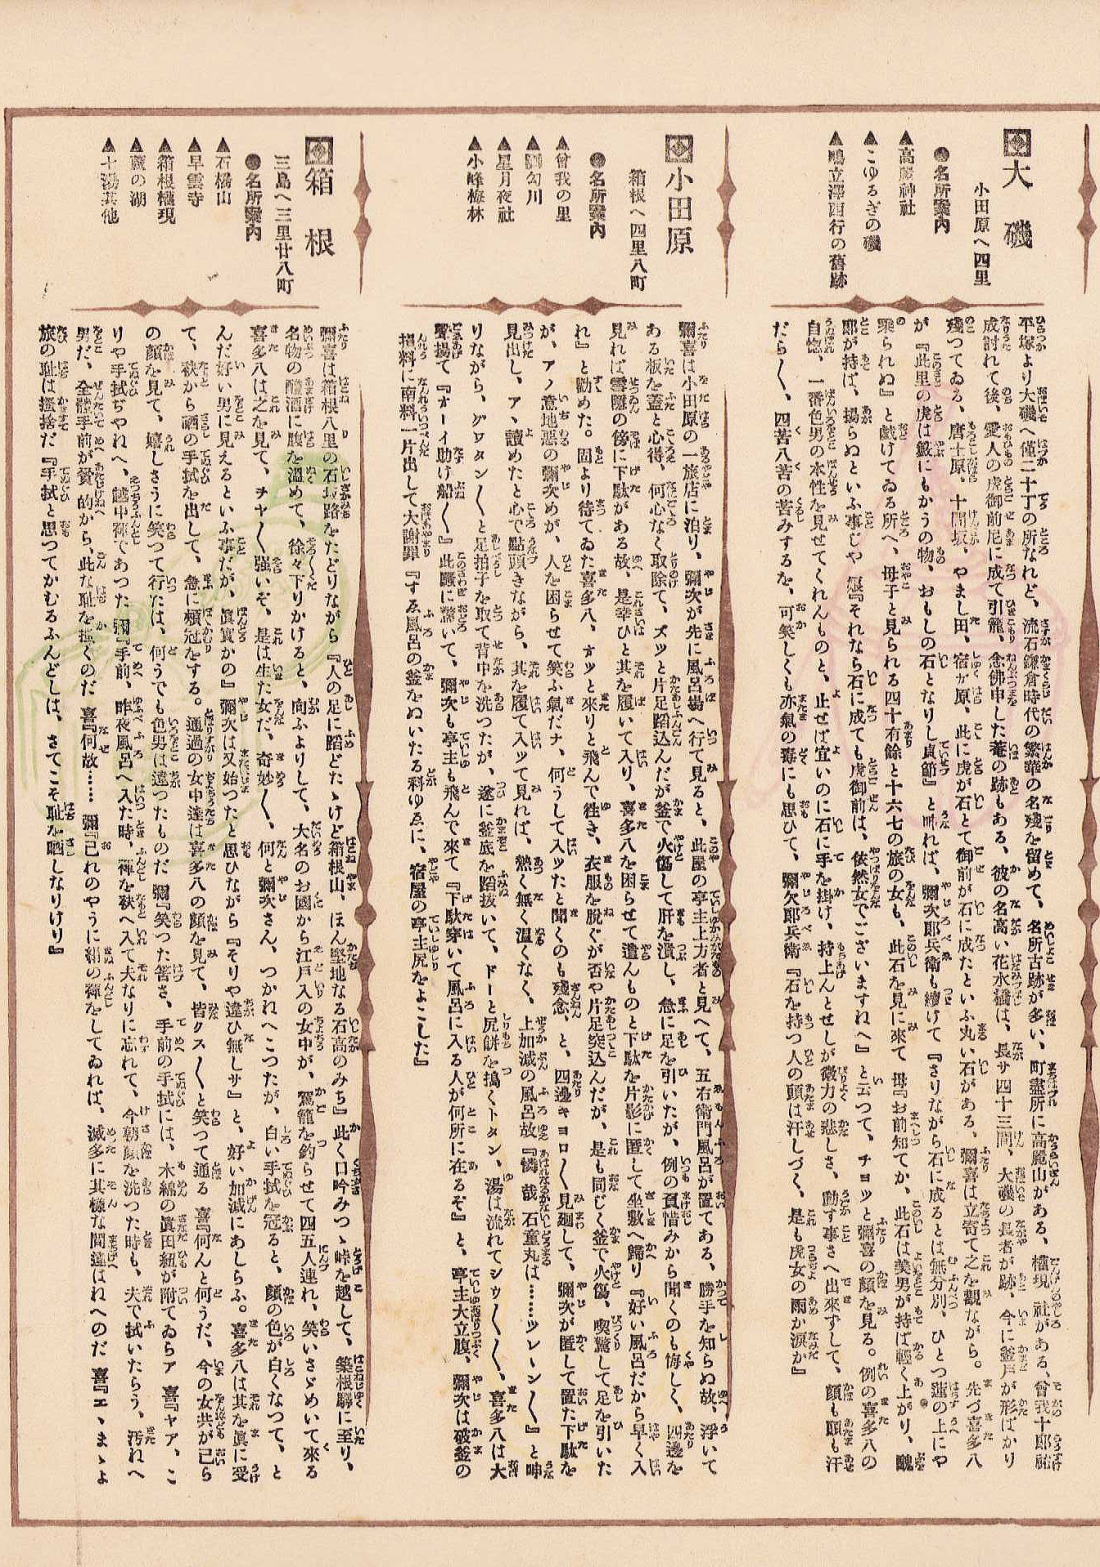 大磯
小田原へ四里
●名所案内
▲高麗神社
▲こゆるぎの磯
▲鴫立澤西行の舊跡
平塚より大磯へ僅二十丁の所なれど、流石鎌倉時代の繁華の名殘を留めて、名所古跡が多い、町盡所に高麗山がある、權現の社がある、曾我十郎祐
成討れて後、愛人の虎御前尼に成て引籠、念佛申した菴の跡もある、彼の名高い花水橋は、長サ四十三間、大磯の長者が跡、今に釜戸が形ばかり
殘つてゐる、唐土原、十間坂、やまし田、宿が原、此に虎が石とて御前が石に成たといふ丸い石がある、彌喜は立寄て之を觀ながら。先づ喜多八
が『此里の虎は藪にもかうの物、おもしの石となりし貞節』と呻れば、彌次郎兵衛も續けて『さりながら石に成るとは無分別、ひとつ蓮の上にや
乘られぬ』と戯けてゐる所へ、母子と見られる四十有餘と十六七の旅の女も、此石を見に來て 母『お前知てか、此石は美男が持ば輕く上がり、醜
郎が持ば、揚らぬといふ事じや 『それなら石に成ても虎御前は、依然女でございますれへ』と云つて、チヨツと彌喜の顔を見る。例の喜多八の
自惚、一番色男の水性を見せてくれんものと、止せば宜いのに石に手を掛け、持上んとせしが微力の悲しさ、動す事さへ出來ずして、顔も頭も汗
だら〱、四苦八苦の苦みするを、可笑しくも亦氣の毒にも思ひて、彌次郎兵衛『石を持つ人の頭は汗しづく、是も虎女の雨か涙か』
小田原
箱根へ四里八町
●名所案内
▲曾我の里
▲酒匂川
▲星月夜社
▲小峰梅林
彌喜は小田原の一旅店に泊り、彌次が先に風呂場へ行て見ると、此屋の亭主上方者と見へて、五右衛門風呂が置てある、勝手を知らぬ故、浮いて
ある板を蓋と心得、何心なく取除て、ズツと片足踏込んだが釜で火傷して肝を潰し、急に足を引いたが、例の負惜みから聞くのも悔しく、四邊を
見れば雪隱の傍に下駄がある故、是幸ひと其を履いて入り、喜多八を困らせて遣んものと下駄を片影に匿して坐敷へ歸り『好い風呂だから早く入
れ』と勸めた。固より待てゐた喜多八、オツと來りと飛んで徃き、衣服を脱ぐが否や片足突込んだが、是も同じく釜で火傷、喫驚して足を引いた
が、アノ意地惡の彌次めが、人を困らせて笑ふ氣だナ、何うして入ツたと聞くのも殘念、と、四邊キヨロ〱見廻して、彌次が匿して置た下駄を
見出し、ア、讀めたと心で點頭きながら、其を履て入ツて見れば、熱く無く温くなく、上加減の風呂故『憐哉石童丸は……ツレーン〱』と呻
りながら、グワタン〱と足拍子を取て背中を洗つたが、遂に釜底を踏抜いて、ドーと尻餅を搗くトタン、湯は流れてシウ〱〱、喜多八は大
聲揚て『オーイ助け船〱』此騷に驚いて、彌次も亭主も飛んで來て『下駄穿いて風呂に入る人が何所に在るぞ』と、亭主大立腹、彌次は破釜の
損料に南料一片出して大謝罪『すゑ風呂の釜をぬいたる科ゆゑに、宿屋の亭主尻をよこした』
箱根
三島へ三里廿八町
●名所案内
▲石橋山
▲早雲寺
▲箱根權現
▲蘆の湖
▲七湯其他
彌喜は箱根八里の石路をたどりながら『人の足に蹈どたゝけど箱根山、ほん堅地なる石高のみち』此く口吟みつゝ峠を越して、箱根驛に至り、
名物の醴酒に腹を温めて、徐々下りかけると、向ふよりして、大名のお國から江戸入の女中が、駕籠を釣らせて四五人連れ、笑いさゞめいて來る
喜多八は之を見て、チヤ〱強いぞ、是は生た女だ、奇妙〱、何と彌次さん、つかれへこつたが、白い手拭を冠ると、顔の色が白くなつて、と
んだ好い男に見えるといふ事だが、眞實かの』彌次は又始つたと思ひながら『そりや違ひ無しサ』と、好い加減にあしらふ。喜多八は其を眞に受
て、袂から晒の手拭を出して、急に頬冠をする。通過の女中達は喜多八の顔を見て、皆クス〱と笑つて通る 喜『何んと何うだ、今の女共が己ら
の顔を見て、嬉しさうに笑つて行たは、何うでも色男は違つたものだ 彌『笑つた筈さ、手前の手拭には、木綿の眞田紐が附てゐらア 喜『ヤア、こ
りや手拭ぢやれへ、越中褌であつた 彌『手前、昨夜風呂へ入た時、褌を袂へ入て夫なりに忘れて、今朝顔を洗つた時も、夫で拭いたらう、汚れへ
男だ、全體手前が貧的から、此な耻を掻くのだ 喜『何故…… 彌『己れのやうに絹の褌をしてゐれば、滅多に其樣な間違はねへのだ 喜『エヽまゝよ
旅の耻は搔捨だ『手拭と思つてかむるふんどしは、さてこそ耻を晒しなりけり』